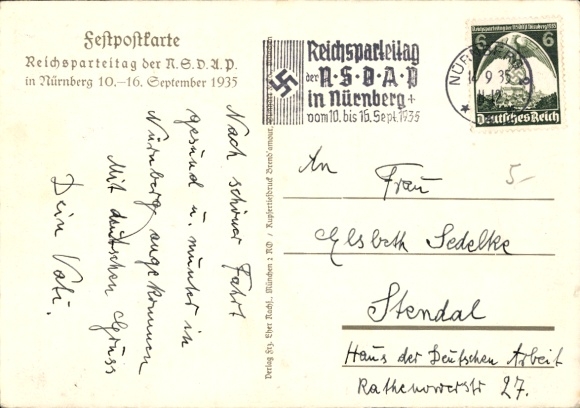 Festpostkarte
Reichsparteitag der N.S.D.A.P.
in Nürnberg 10.–16. September 1935
Reichsparteitag
der N·S·D·A·P
in Nürnberg +
vom 10. bis 16. Sept. 1935
NÜRNBERG 2
14.9.35
11-12
6 Reichsparteitag der NSDAP Nürnberg 1935 6
Deutsches Reich
Nach schöner Fahrt
gesund u. munter in
Nürnberg angekommen
Mit deutschen Gruss
Dein Vati.
Verlag Frz. Eher Nachf., München 2 NO / Kupfertiefdruck Brend'amour,
5-
An
Frau
Elsbeth Sedelke
Stendal
Haus der Deutschen Arbeit
Rathenowerstr 27.